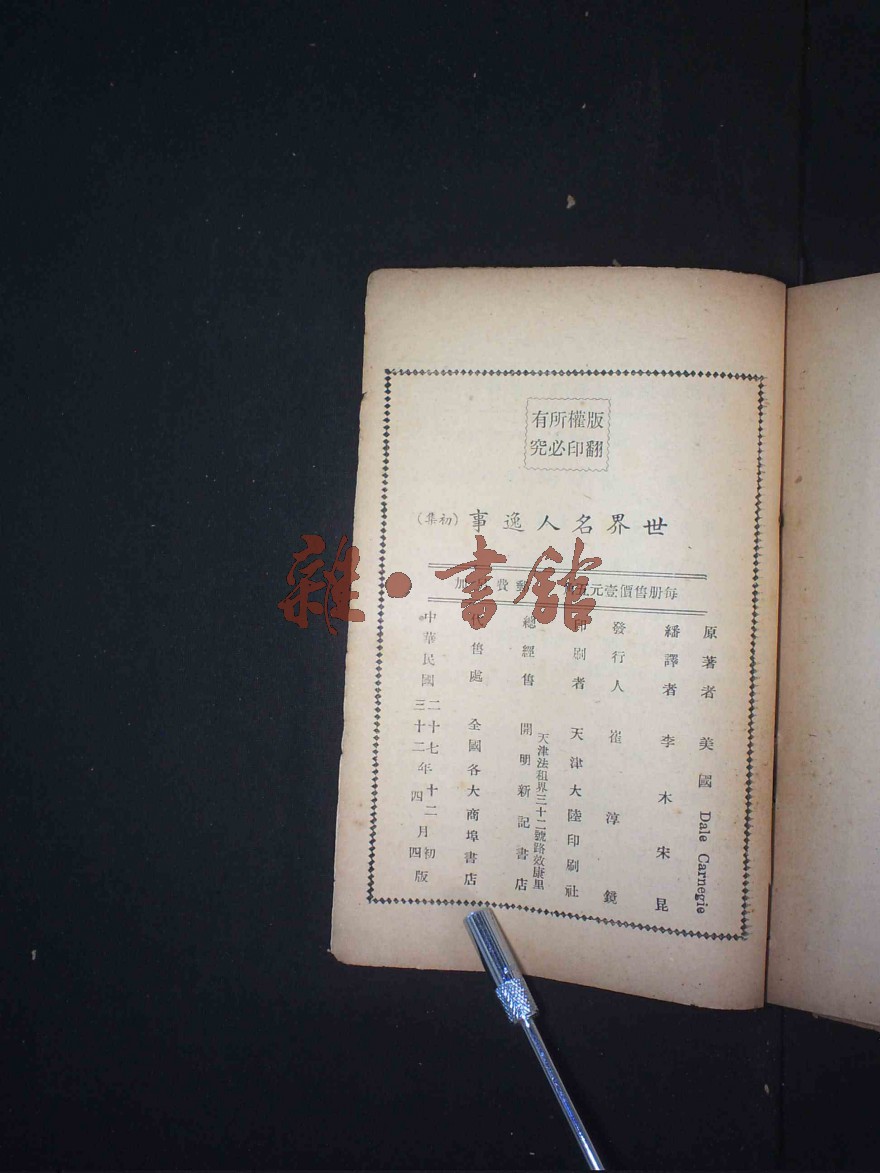 版權所有
翻印必究
世界名人逸事（初集）
每册售價壹元五 郵費 加
原著者 美國 Dale Carnegie
繙譯者 李木 宋昆
發行人 崔淳鏡
印刷者 天津大陸印刷社
天津法租界三十二號路效康里
總經售 開明新記書店
代售處 全國各大商埠書店
中華民國 二十七年十二月初版
三十二年四月四版
雜·書館